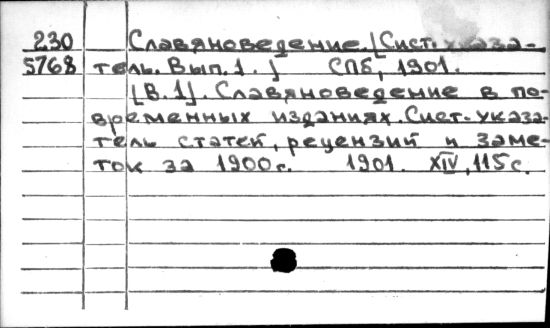 230 Славяноведение. [Сист. указа-
5768 тель. Вып. 1.] СПб, 1901.
[В. 1]. Славяноведение в по-
временных изданиях. Сист. указа-
тель статей, рецензий и заме-
ток за 1900 г. 1901. XIV, 115 с.